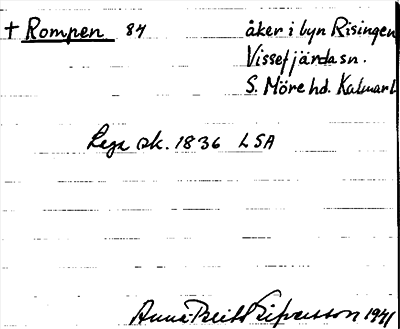 † Rompen 84 åker i byn Risingen
Vissefjärda sn.
S. Möre hd. Kalmar l.
Laga sk. 1836 LSA
Anna-Britt Sigvardsson 1941